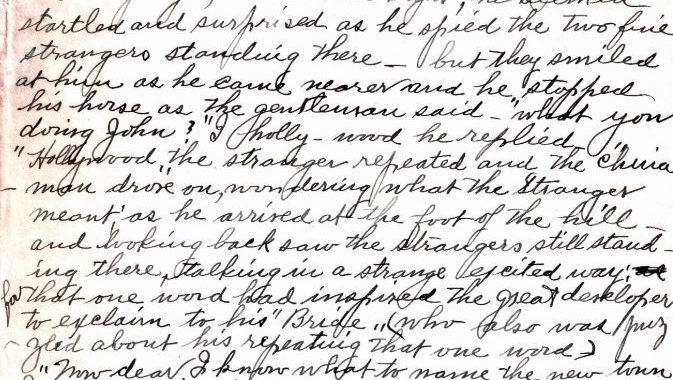 startled and surprised as he spied the two fine
strangers standing there – but they smiled
at him as he came nearer and he stopped
his horse as the gentleman said – "what you
doing John?" "I holly-wood he replied,
"Hollywood," the stranger repeated and the China
- man drove on, wondering what the stranger
meant, as he arrived at the foot of the hill –
and looking back saw the strangers still stand-
ing there, talking in a strange excited way;
for that one word had inspired the great developer
to exclaim to his "Bride", (who also was puz
- zled about his repeating that one word)
"Now dear, I know what to name the new town